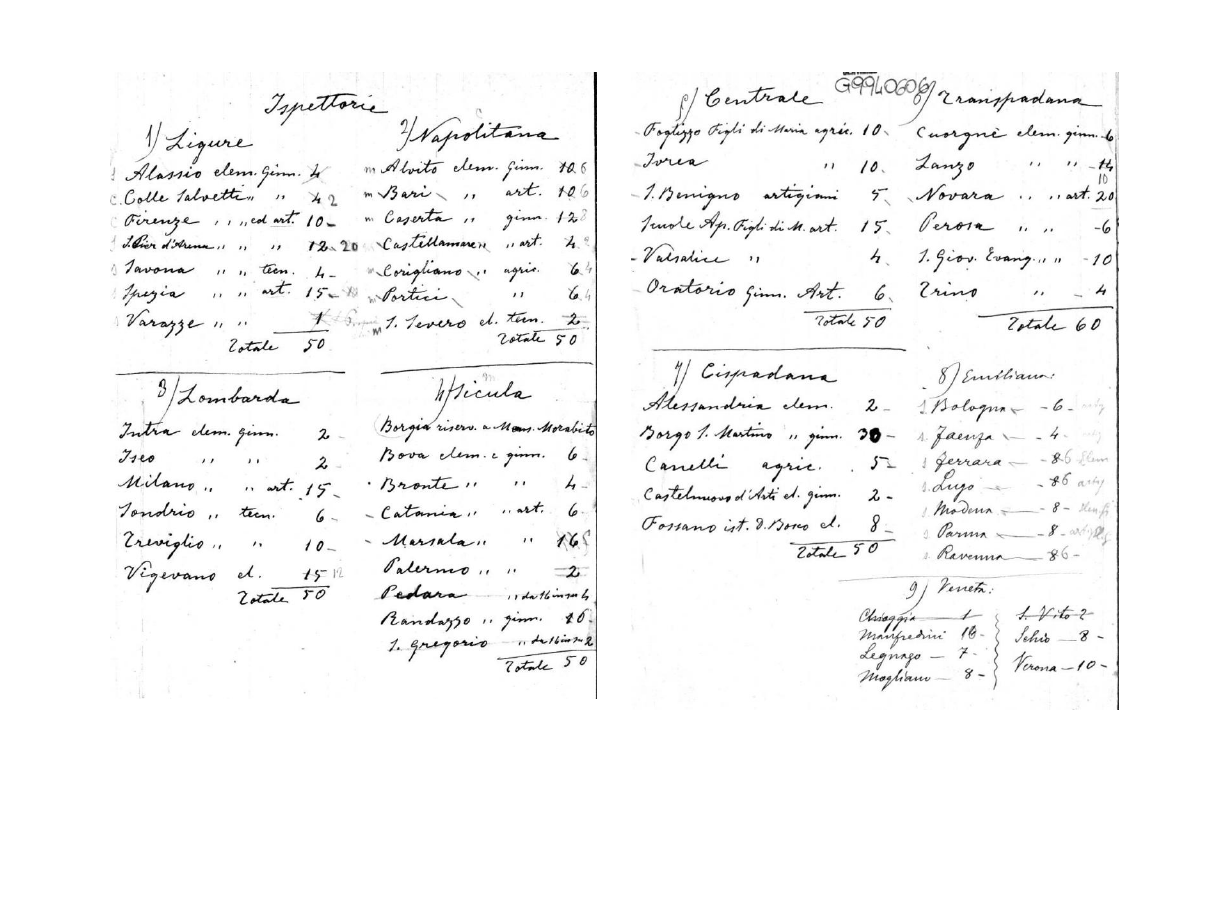 Ispettorie
1) Ligure
Alassio elem. Ginn. 4
Colle Salvetti „ „ 4 2
Firenze „ „ ed art. 10-
S. Pier d'Arena „ „ „ 12-20
Savona „ „ tecn. 4-
Spezia „ „ art. 15-
Varazze „ „ 1
Totale 50
2) Napolitana
m Alvito elem. Ginn. 10 6
m Bari „ art. 10 6
m Caserta „ ginn. 12 8
Castellamare „ „ art. 4
m Corigliano „ agric. 6 4
m Portici „ 6 4
m S. Severo el. tecn. 2
Totale 50
3) Lombarda
Intra elem. ginn. 2-
Iseo „ „ 2
Milano „ „ art. 15-
Sondrio „ tecn. 6-
Treviglio „ „ 10-
Vigevano el. 15 12
Totale 50
4) Sicula
Borgia riserv. a Mons. Morabito
Bova elem. e ginn. 6
Bronte „ „ 4-
- Catania „ „ art. 6-
- Marsala „ „ 16
Palermo „ „ 2
Pedara „ da 16 in su 4
Randazzo „ ginn. 10
S. Gregorio „ da 16 in su 2
Totale 50
G9940606
5) Centrale
Foglizzo Figli di Maria agric. 10-
Ivrea „ 10-
S. Benigno artigiani 5
Scuole Ap. Figli di M. art. 15
- Valsalice „ 4
Oratorio Ginn. Art. 6
Totale 50
6) Transpadana
Cuorgnè elem. ginn. 6
Lanzo „ „ -14
10
Novara „ „ art. 20
Perosa „ „ -6
S. Giov. Evang. „ „ -10
Trino „ - 4
Totale 60
7) Cispadana
Alessandria elem. 2-
Borgo S. Martino „ ginn. 30-
Canelli agric. 5-
Castelnuovo d'Asti el. ginn. 2-
Fossano ist. D. Bosco el. 8-
Totale 50
8) Emiliana:
Bologna - 6-
Faenza - 4-
Ferrara - 8 6
Lugo - 8 6
Modena - 8-
Parma - 8-
Ravenna - 8 6-
9) Veneta:
Chioggia - 1
Manfredini 16-
Legnago - 7-
Mogliano - 8-
S. Vito 2
Schio - 8-
Verona - 10-